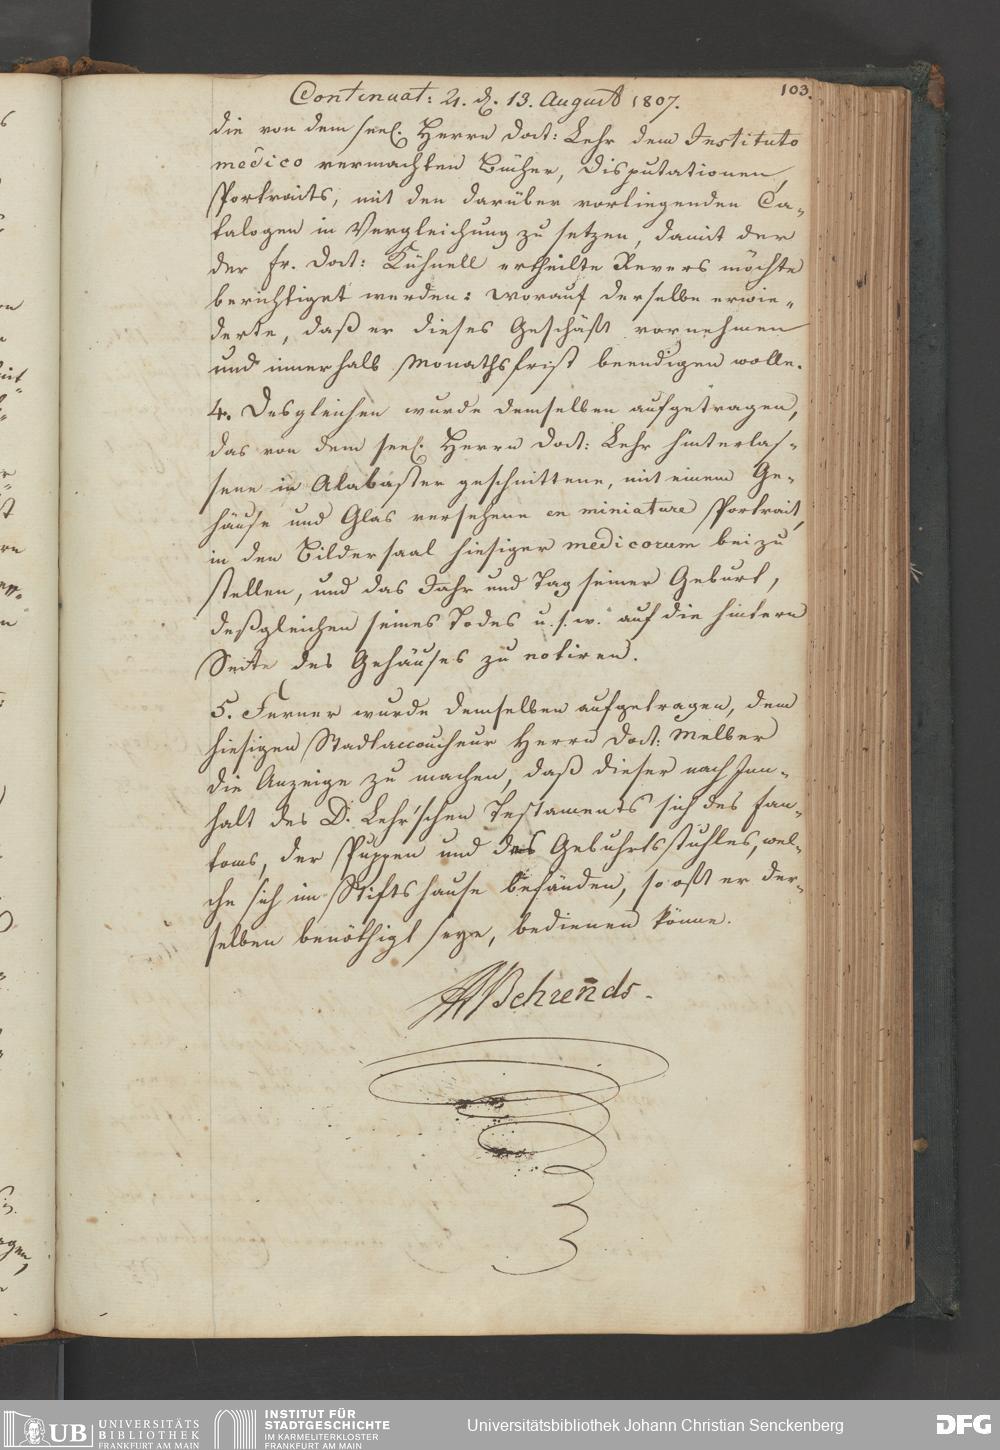 Continuat: 21. d. 13. August 1807.
103.
die von dem seel. Herrn Doct: Lehr dem Instituto
medico vermachten Bücher, Disputationen,
Portraits, mit den darüber vorliegenden Ca-
talogen in Vergleichung zu setzen, damit der
der Fr. Doct: Kühnell ertheilte Revers möchte
berichtiget werden: worauf derselbe erwie-
derte, daß er dieses Geschäft vornehmen
und innerhalb Monathsfrist beendigen wolle.
4. Desgleichen wurde demselben aufgetragen,
das von dem seel. Herrn Doct: Lehr hinterlas-
sene in Alabaster geschnittene, mit einem Ge-
häuse und Glas versehene en miniature Portrait,
in den Bildersaal hiesiger medicorum beizu
stellen, und das Jahr und Tag seiner Geburt,
deßgleichen seines Todes u. s. w. auf die hintern
Seite des Gehäuses zu notiren.
5. Ferner wurde demselben aufgetragen, dem
hiesigen Stadtaccoucheur Herrn Doct: Melber
die Anzeige zu machen, daß dieser nach Inn-
halt des D. Lehr'schen Testaments sich des Fan-
toms, der Puppen und des Gebuhrtsstuhles, wel-
che sich im Stiftshause befänden, so oft er der-
selben benöthigt seye, bedienen könne.
Behrends.
UB UNIVERSITÄTS
BIBLIOTHEK
FRANKFURT AM MAIN
INSTITUT FÜR
STADTGESCHICHTE
IM KARMELITERKLOSTER
FRANKFURT AM MAIN
Universitätsbibliothek Johann Christian Senckenberg
DFG